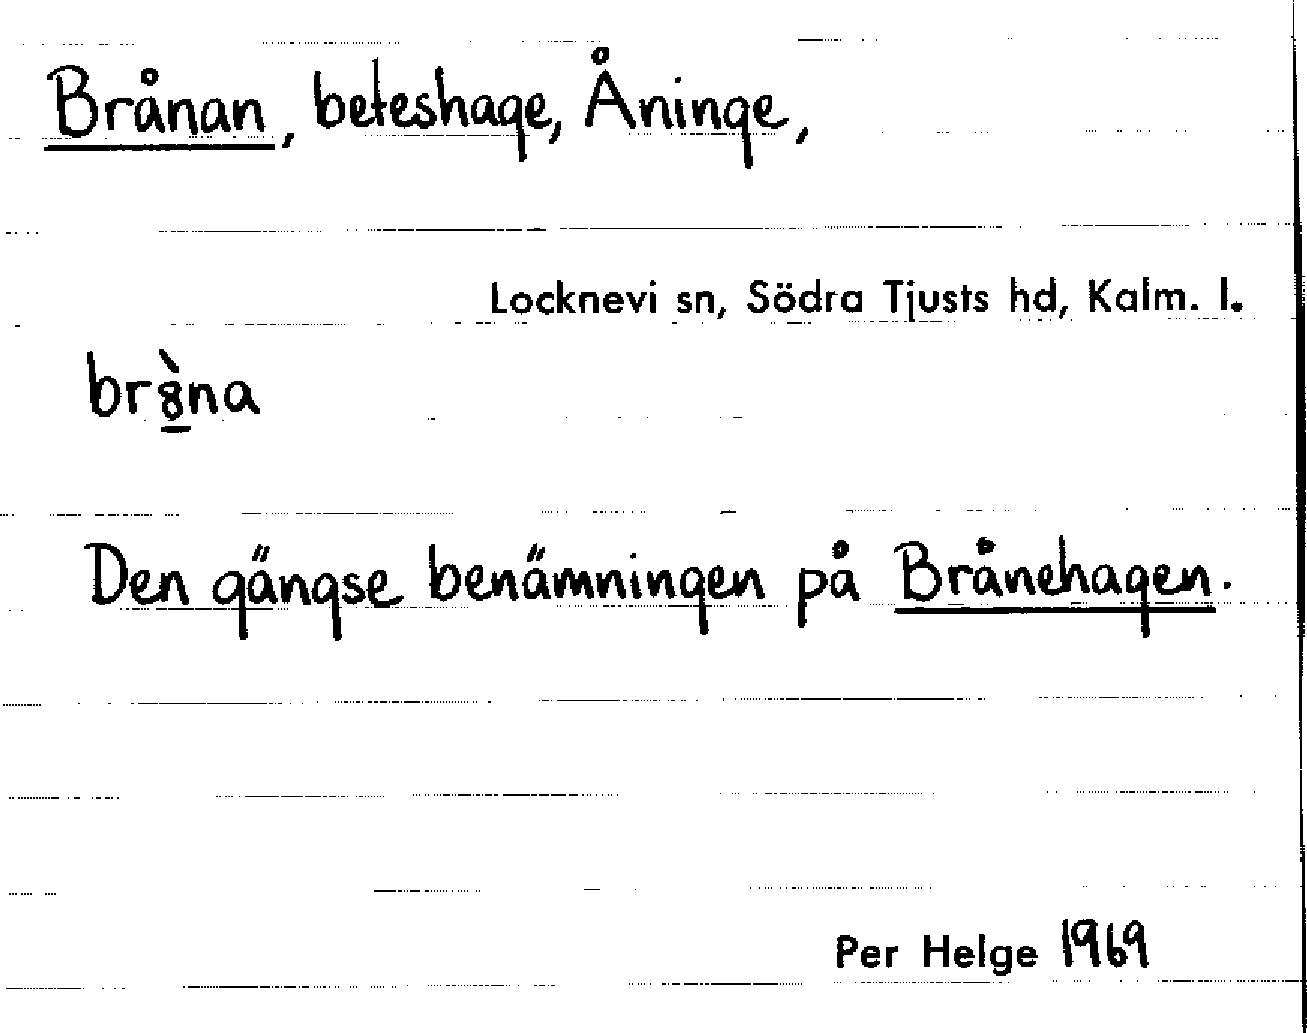 Brånan, beteshage, Åninge,
Locknevi sn, Södra Tjusts hd, Kalm. l.
br8̲̀na
Den gängse benämningen på Brånehagen.
Per Helge 1969